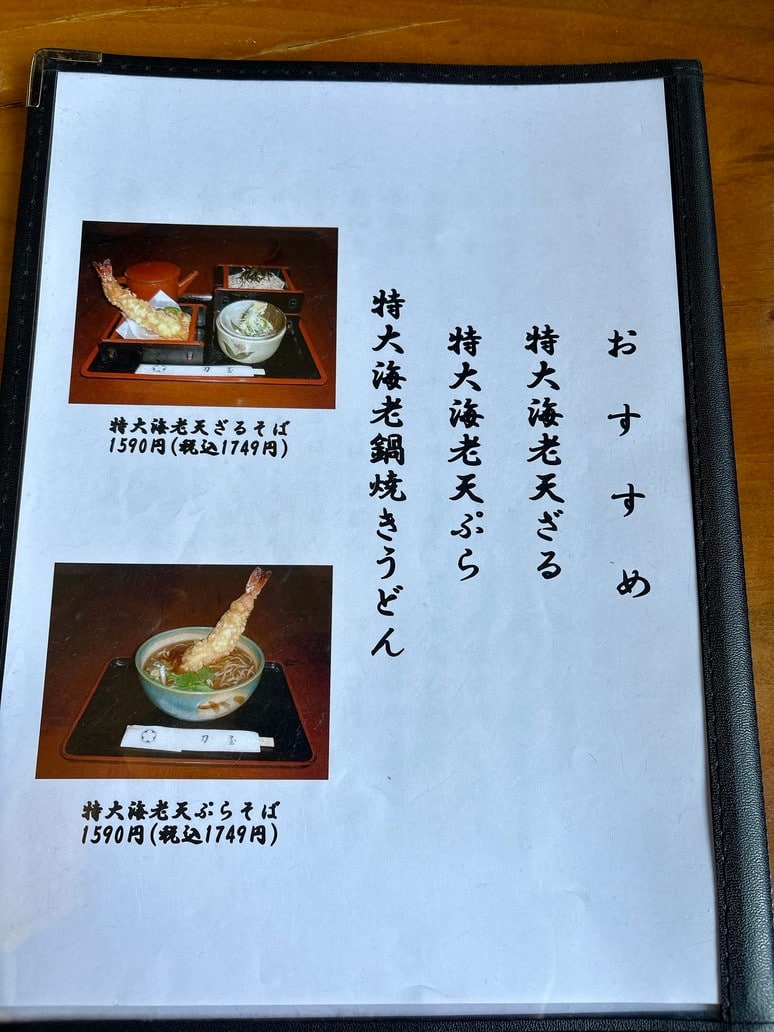 おすすめ
特大海老天ざる
特大海老天ぷら
特大海老鍋焼きうどん
特大海老天ざるそば
1590円(税込1749円)
特大海老天ぷらそば
1590円(税込1749円)